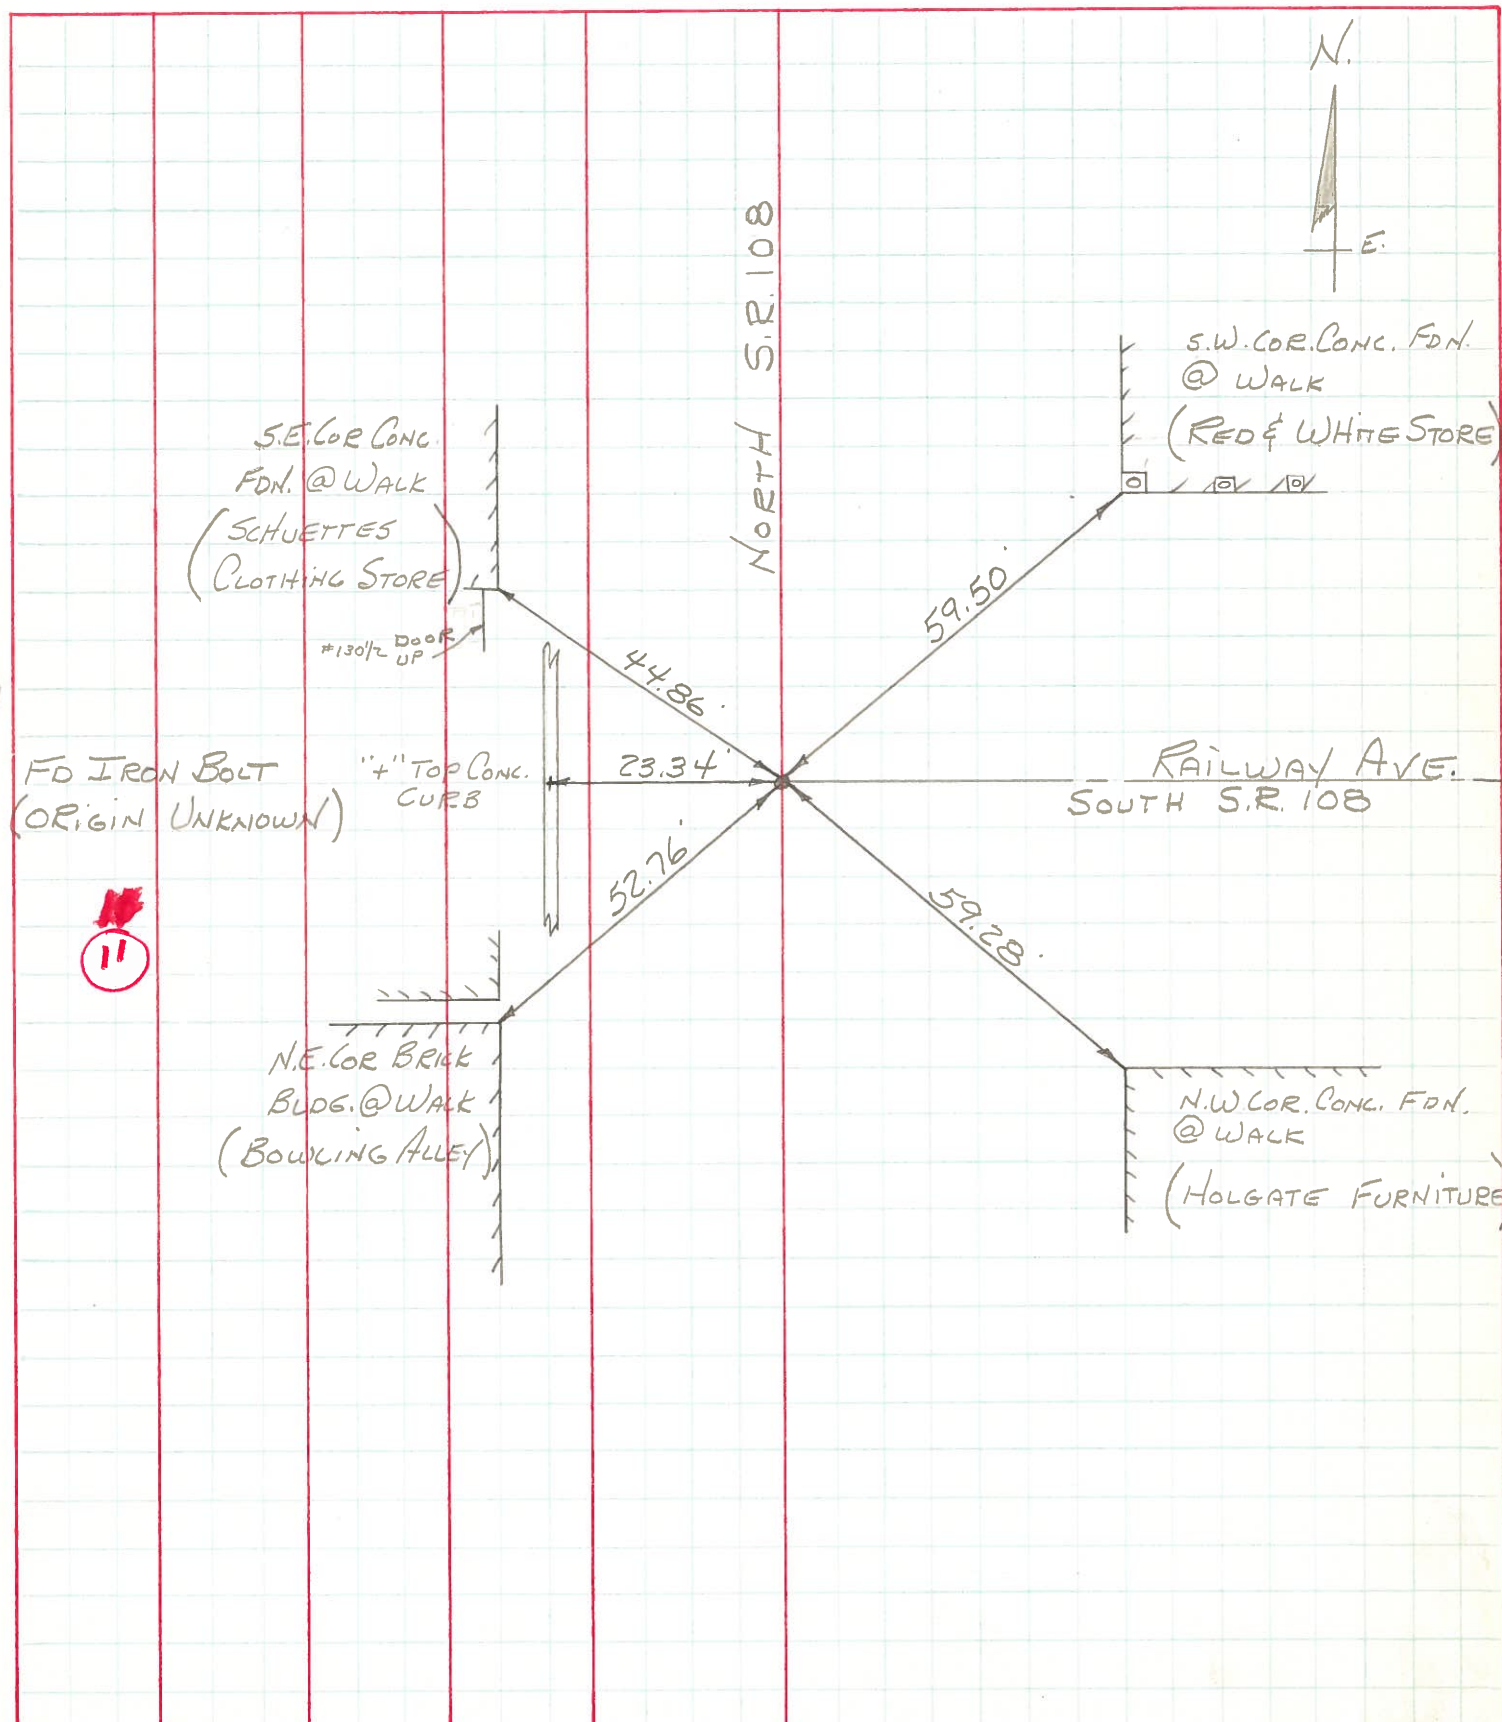 N.
E.
NORTH S.R. 108
S.W. COR. CONC. FDN.
@ WALK
(RED & WHITE STORE)
S.E. COR CONC.
FDN. @ WALK
(SCHUETTES
CLOTHING STORE)
#130 1/2 DOOR
UP
59.50'
44.86'
FD IRON BOLT
(ORIGIN UNKNOWN)
"+" TOP CONC.
CURB
23.34'
RAILWAY AVE.
SOUTH S.R. 108
52.76'
59.28'
11
N.E. COR BRICK
BLDG. @ WALK
(BOWLING ALLEY)
N.W COR. CONC. FDN.
@ WALK
(HOLGATE FURNITURE)